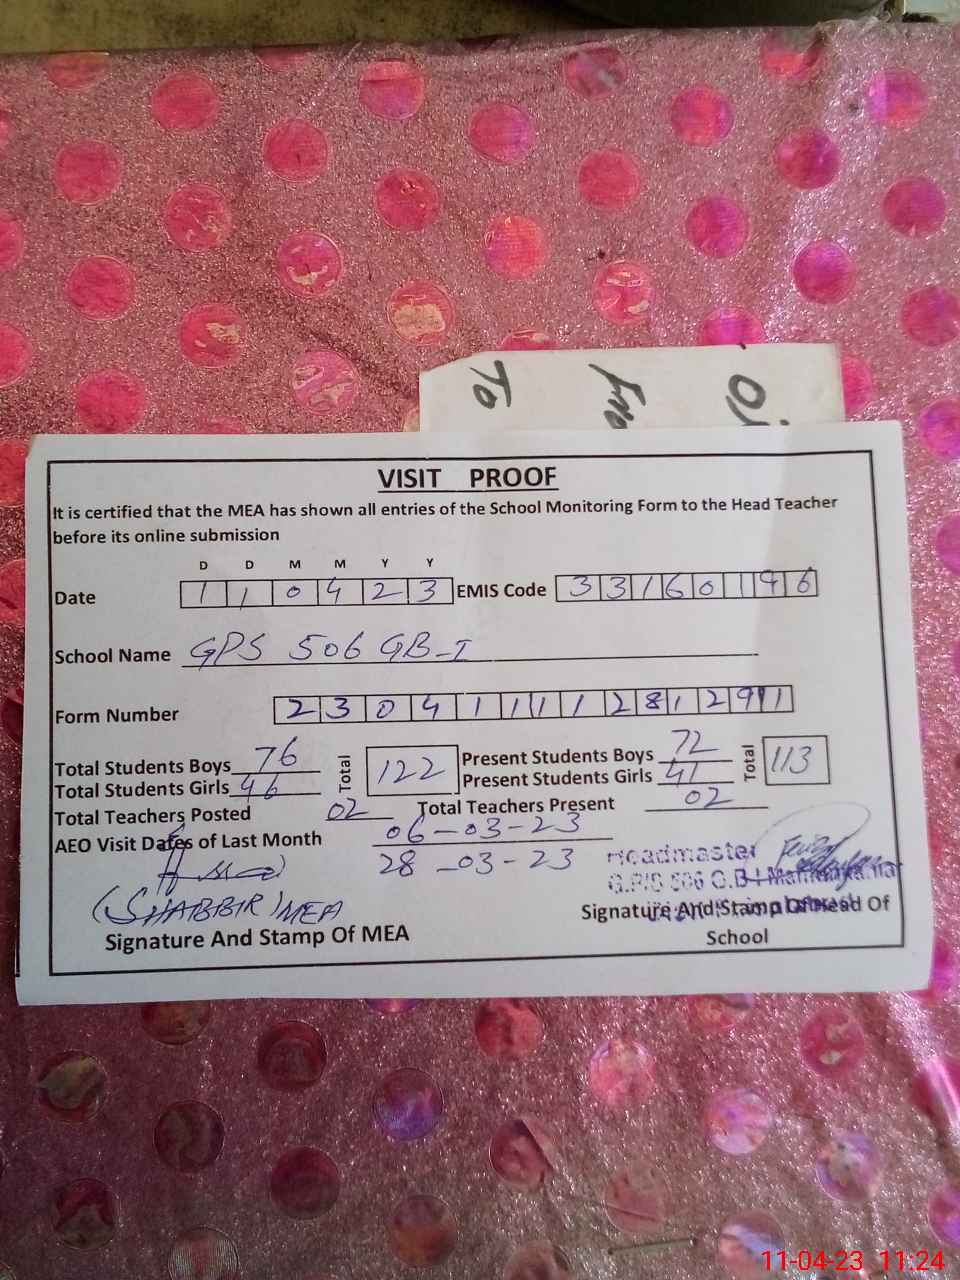 To
VISIT PROOF
It is certified that the MEA has shown all entries of the School Monitoring Form to the Head Teacher
before its online submission
D D M M Y Y
Date 1 1 0 4 2 3 EMIS Code 3 3 1 6 0 1 9 6
School Name GPS 506 GB-I
Form Number 2 3 0 4 1 1 1 1 2 8 1 2 9 1
Total Students Boys 76 Total 122 Present Students Boys 72 Total 113
Total Students Girls 46 Present Students Girls 41
Total Teachers Posted 02 Total Teachers Present 02
AEO Visit Dates of Last Month 06-03-23
28-03-23
Headmaster
G.P/S 506 G.B-I
(SHABBIR) MEA
Signature And Stamp Of MEA
Signature And Stamp Of Head Of
School
11-04-23 11:24